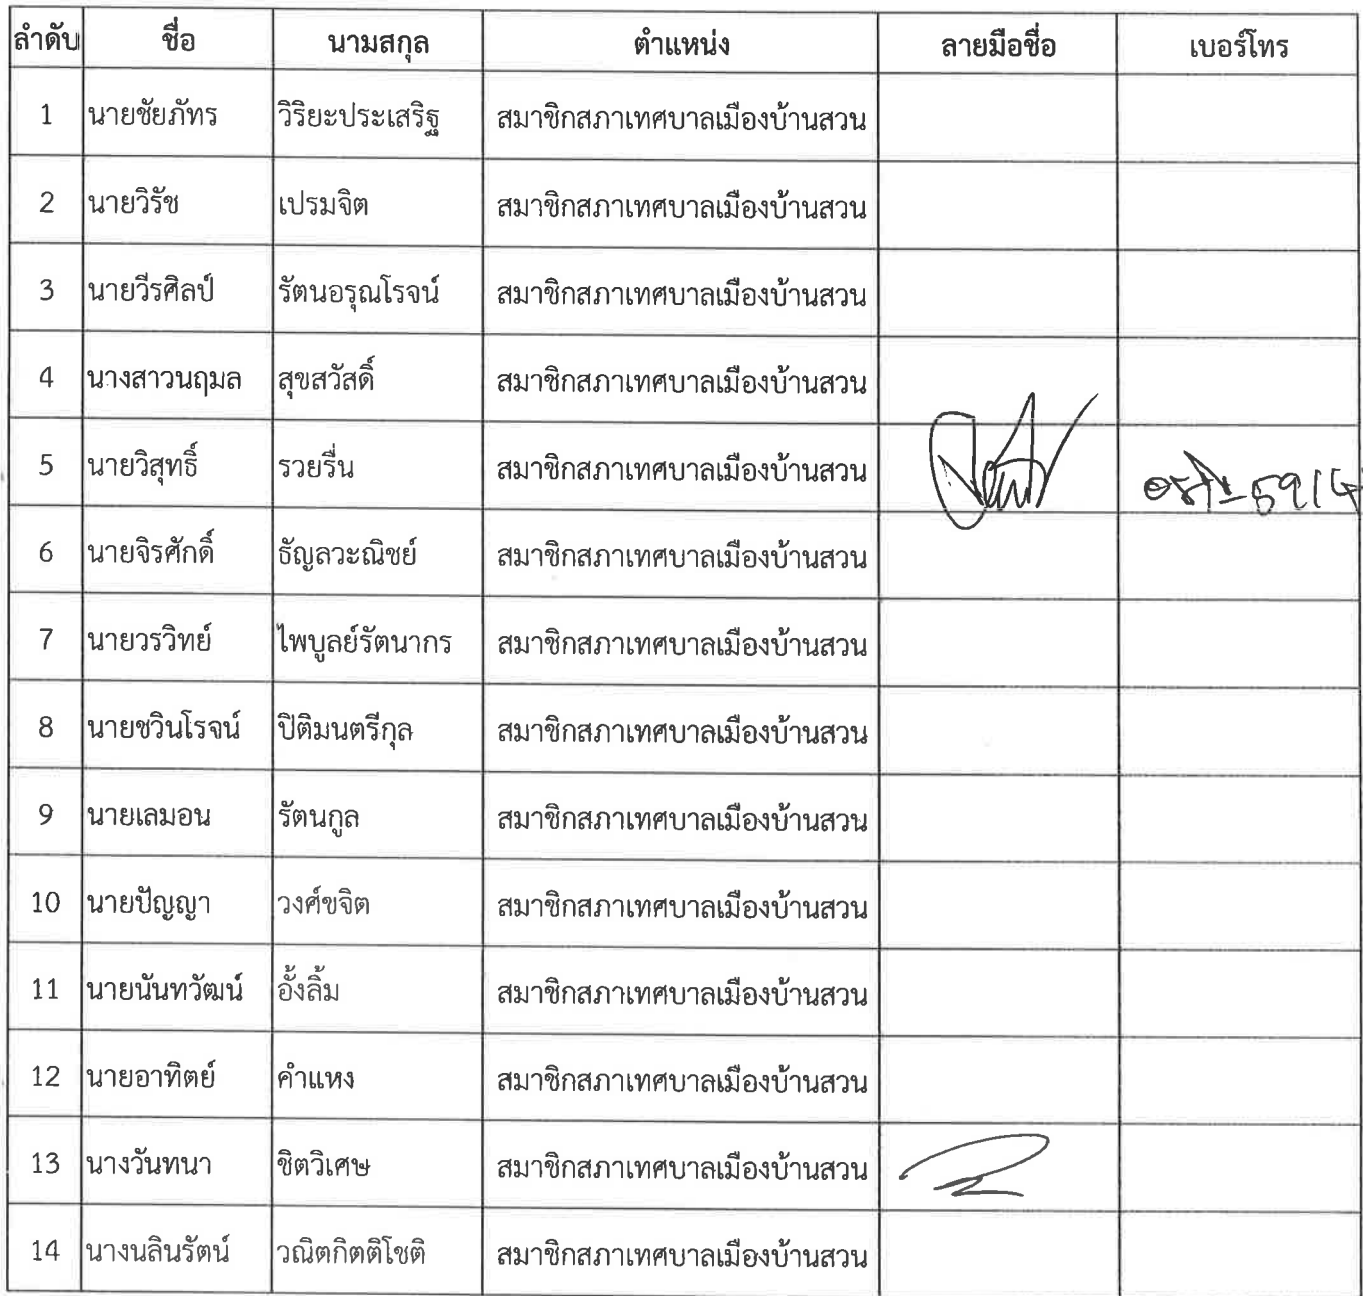 ลำดับ ชื่อ นามสกุล ตำแหน่ง ลายมือชื่อ เบอร์โทร
1 นายชัยภัทร วิริยะประเสริฐ สมาชิกสภาเทศบาลเมืองบ้านสวน
2 นายวิรัช เปรมจิต สมาชิกสภาเทศบาลเมืองบ้านสวน
3 นายวีรศิลป์ รัตนอรุณโรจน์ สมาชิกสภาเทศบาลเมืองบ้านสวน
4 นางสาวนฤมล สุขสวัสดิ์ สมาชิกสภาเทศบาลเมืองบ้านสวน
5 นายวิสุทธิ์ รวยรื่น สมาชิกสภาเทศบาลเมืองบ้านสวน
6 นายจิรศักดิ์ ธัญลวะณิชย์ สมาชิกสภาเทศบาลเมืองบ้านสวน
7 นายวรวิทย์ ไพบูลย์รัตนากร สมาชิกสภาเทศบาลเมืองบ้านสวน
8 นายชวินโรจน์ ปิติมนตรีกุล สมาชิกสภาเทศบาลเมืองบ้านสวน
9 นายเลมอน รัตนกูล สมาชิกสภาเทศบาลเมืองบ้านสวน
10 นายปัญญา วงศ์ขจิต สมาชิกสภาเทศบาลเมืองบ้านสวน
11 นายนันทวัฒน์ อั้งลิ้ม สมาชิกสภาเทศบาลเมืองบ้านสวน
12 นายอาทิตย์ คำแหง สมาชิกสภาเทศบาลเมืองบ้านสวน
13 นางวันทนา ชิตวิเศษ สมาชิกสภาเทศบาลเมืองบ้านสวน
14 นางนลินรัตน์ วณิตกิตติโชติ สมาชิกสภาเทศบาลเมืองบ้านสวน